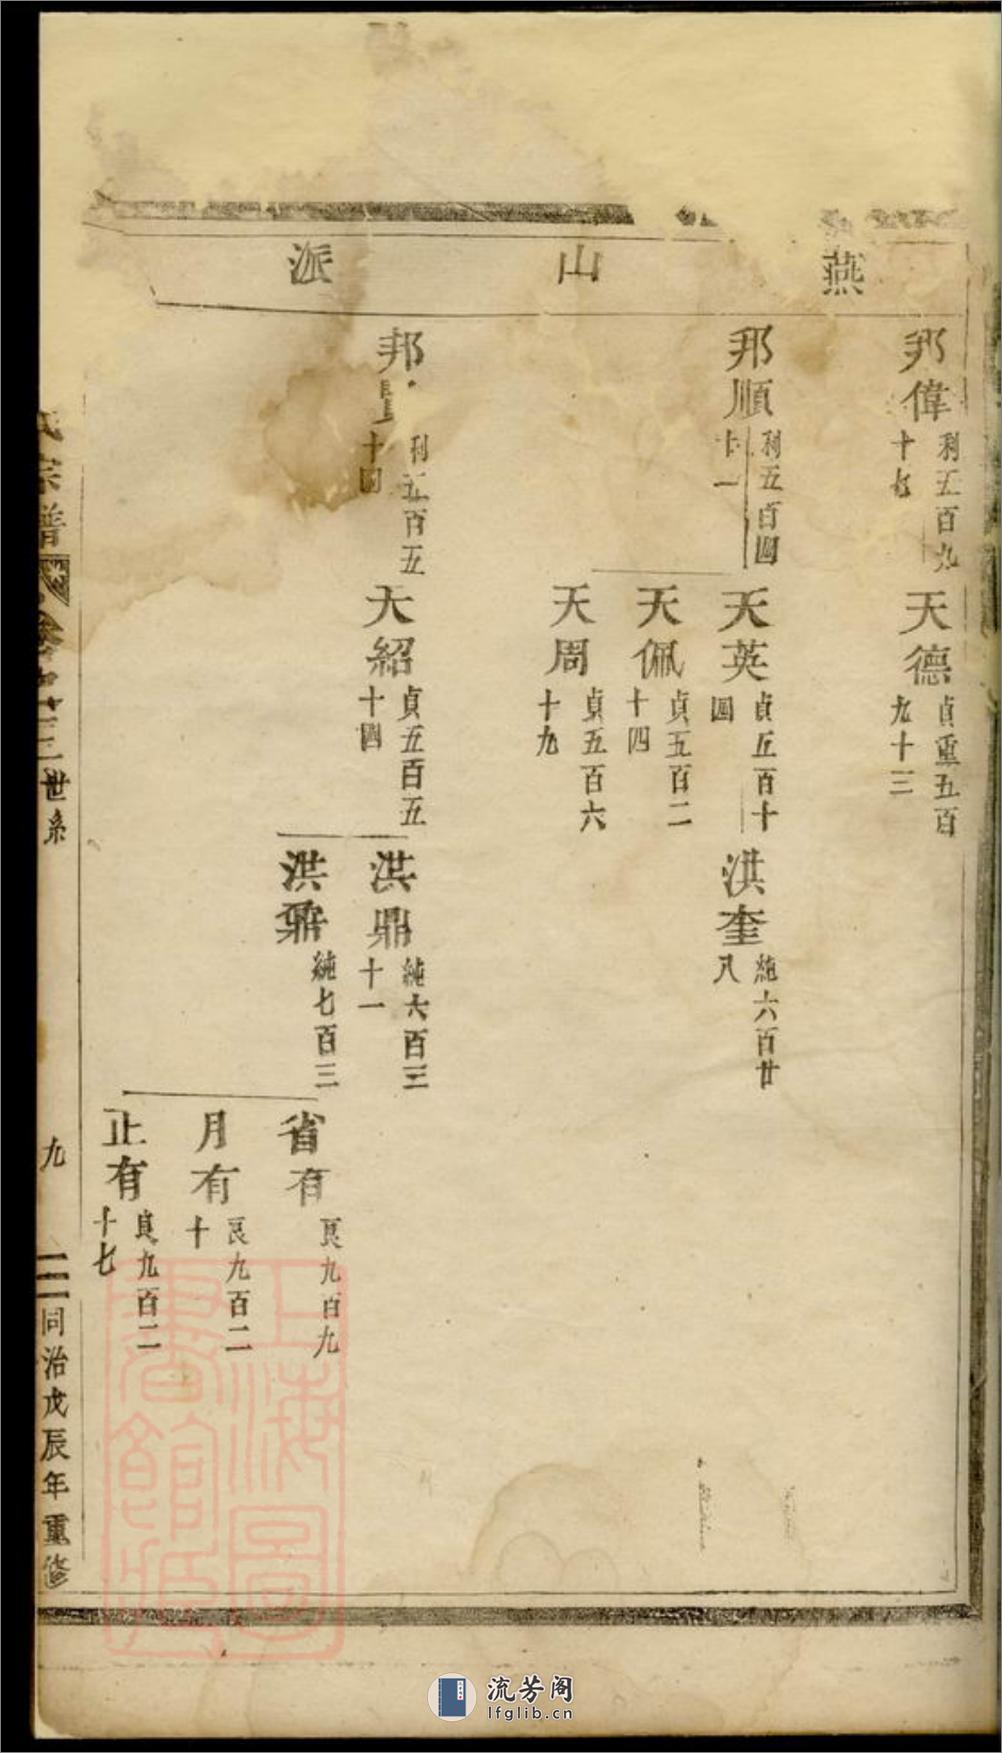 燕山派
邦偉
利五百九
十七
天德
貞重五百
九十三
邦順
利五百四
十一
天英
貞五百十
四
洪奎
純六百廿
八
天佩
貞五百二
十四
天周
貞五百六
十九
邦
利五百五
十四
天紹
貞五百五
十四
洪鼎
純六百三
十一
洪鼐
純七百三
省有
艮九百九
月有
艮九百二
十
正有
艮九百二
十七
氏宗譜
卷之十三世系
九
同治戊辰年重修
上海圖書館藏
流芳阁
lfglib.cn